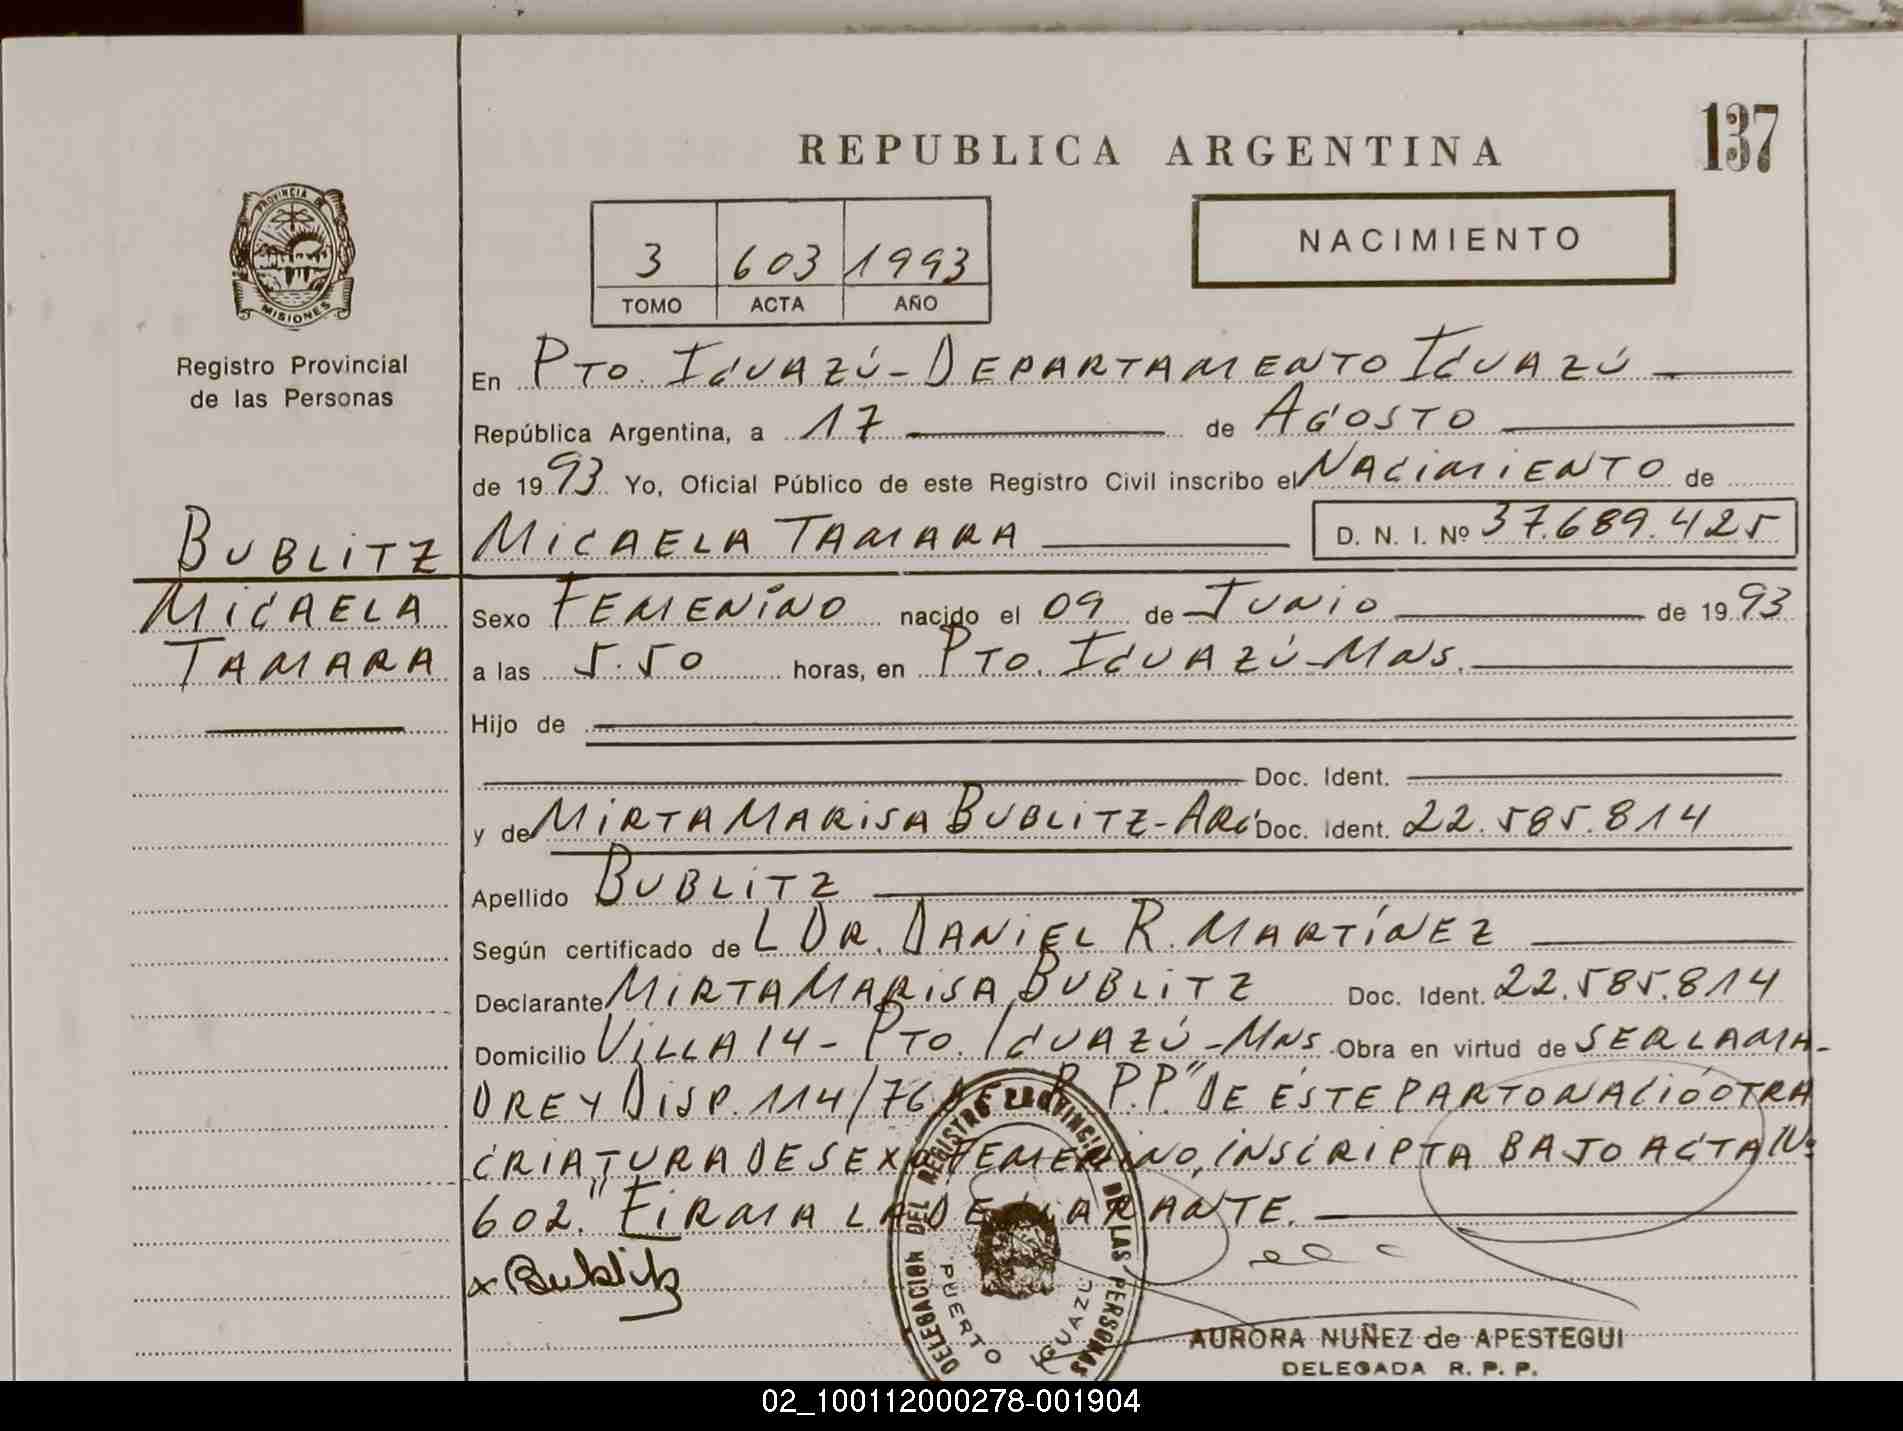 137
REPUBLICA ARGENTINA
NACIMIENTO
3 603 1993
TOMO ACTA AÑO
PROVINCIA DE MISIONES
Registro Provincial
de las Personas
En PTO. IGUAZÚ - DEPARTAMENTO IGUAZÚ
República Argentina, a 17 de AGOSTO
de 1993 Yo, Oficial Público de este Registro Civil inscribo el NACIMIENTO de
BUBLITZ MICAELA TAMARA D. N. I. Nº 37.689.425
MICAELA
TAMARA
Sexo FEMENINO nacido el 09 de JUNIO de 1993
a las 5.50 horas, en PTO. IGUAZÚ - MNS.
Hijo de
Doc. Ident.
y de MIRTA MARISA BUBLITZ - ARG Doc. Ident. 22.585.814
Apellido BUBLITZ
Según certificado de L DR. DANIEL R. MARTÍNEZ
Declarante MIRTA MARISA BUBLITZ Doc. Ident. 22.585.814
Domicilio VILLA 14 - PTO. IGUAZÚ - MNS. Obra en virtud de SER LA MA-
DRE Y DISP. 114/76 R.P.P. "DE ÉSTE PARTO NACIÓ OTRA
CRIATURA DE SEXO FEMENINO, INSCRIPTA BAJO ACTA Nº
602." FIRMA LA DECLARANTE.
x Bublitz
DELEGACION DEL REGISTRO PROVINCIAL DE LAS PERSONAS
PUERTO IGUAZU
AURORA NUÑEZ de APESTEGUI
DELEGADA R. P. P.
02_100112000278-001904